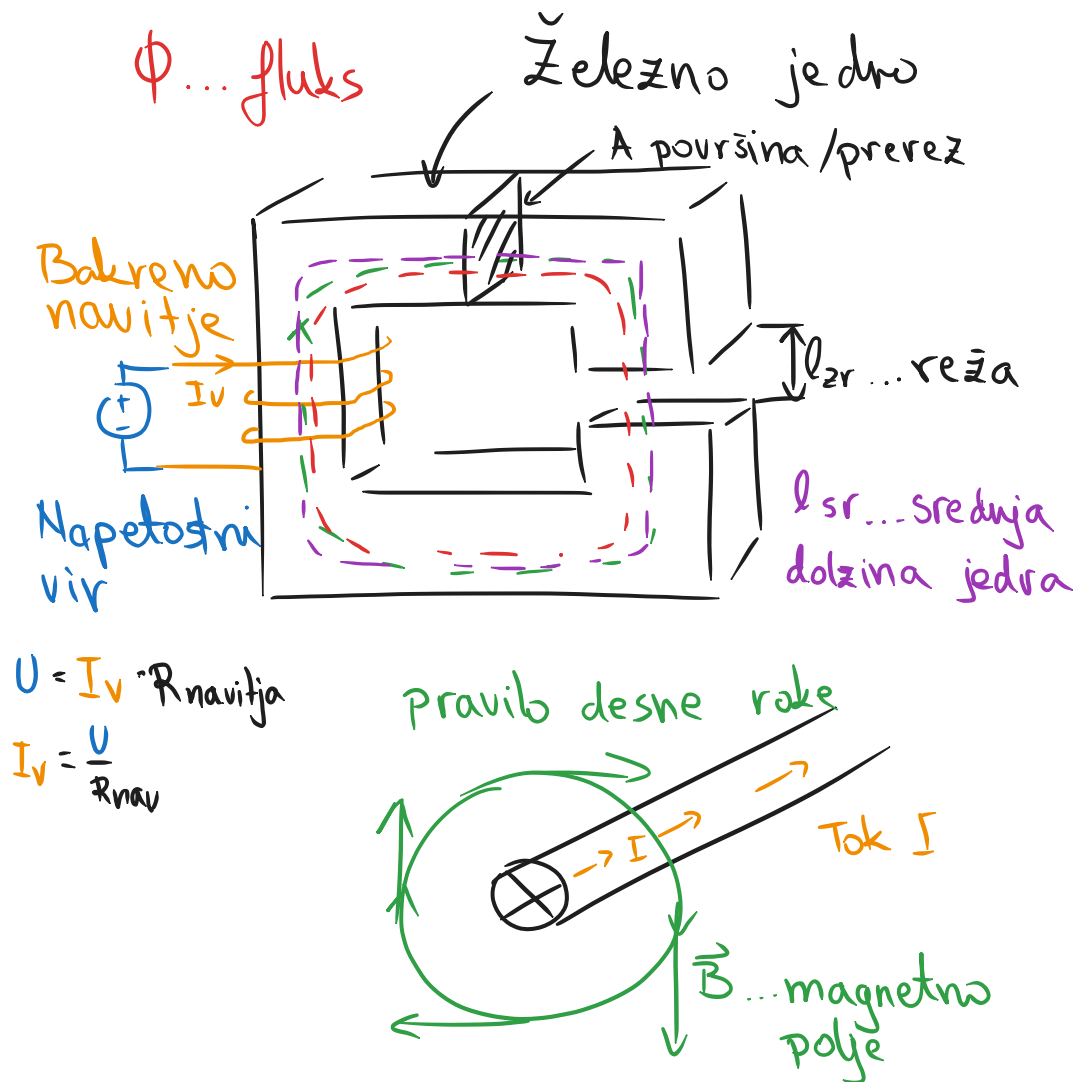 Φ...fluks
Železno jedro
A površina/prerez
Bakreno
navitje
I_v
+
-
l_zr...reža
Napetostni
vir
l sr...srednja
dolzina jedra
U = I_v · R_navitja
I_v = U/R_nav
pravilo desne roke
I
Tok I
B⃗...magnetno
polje